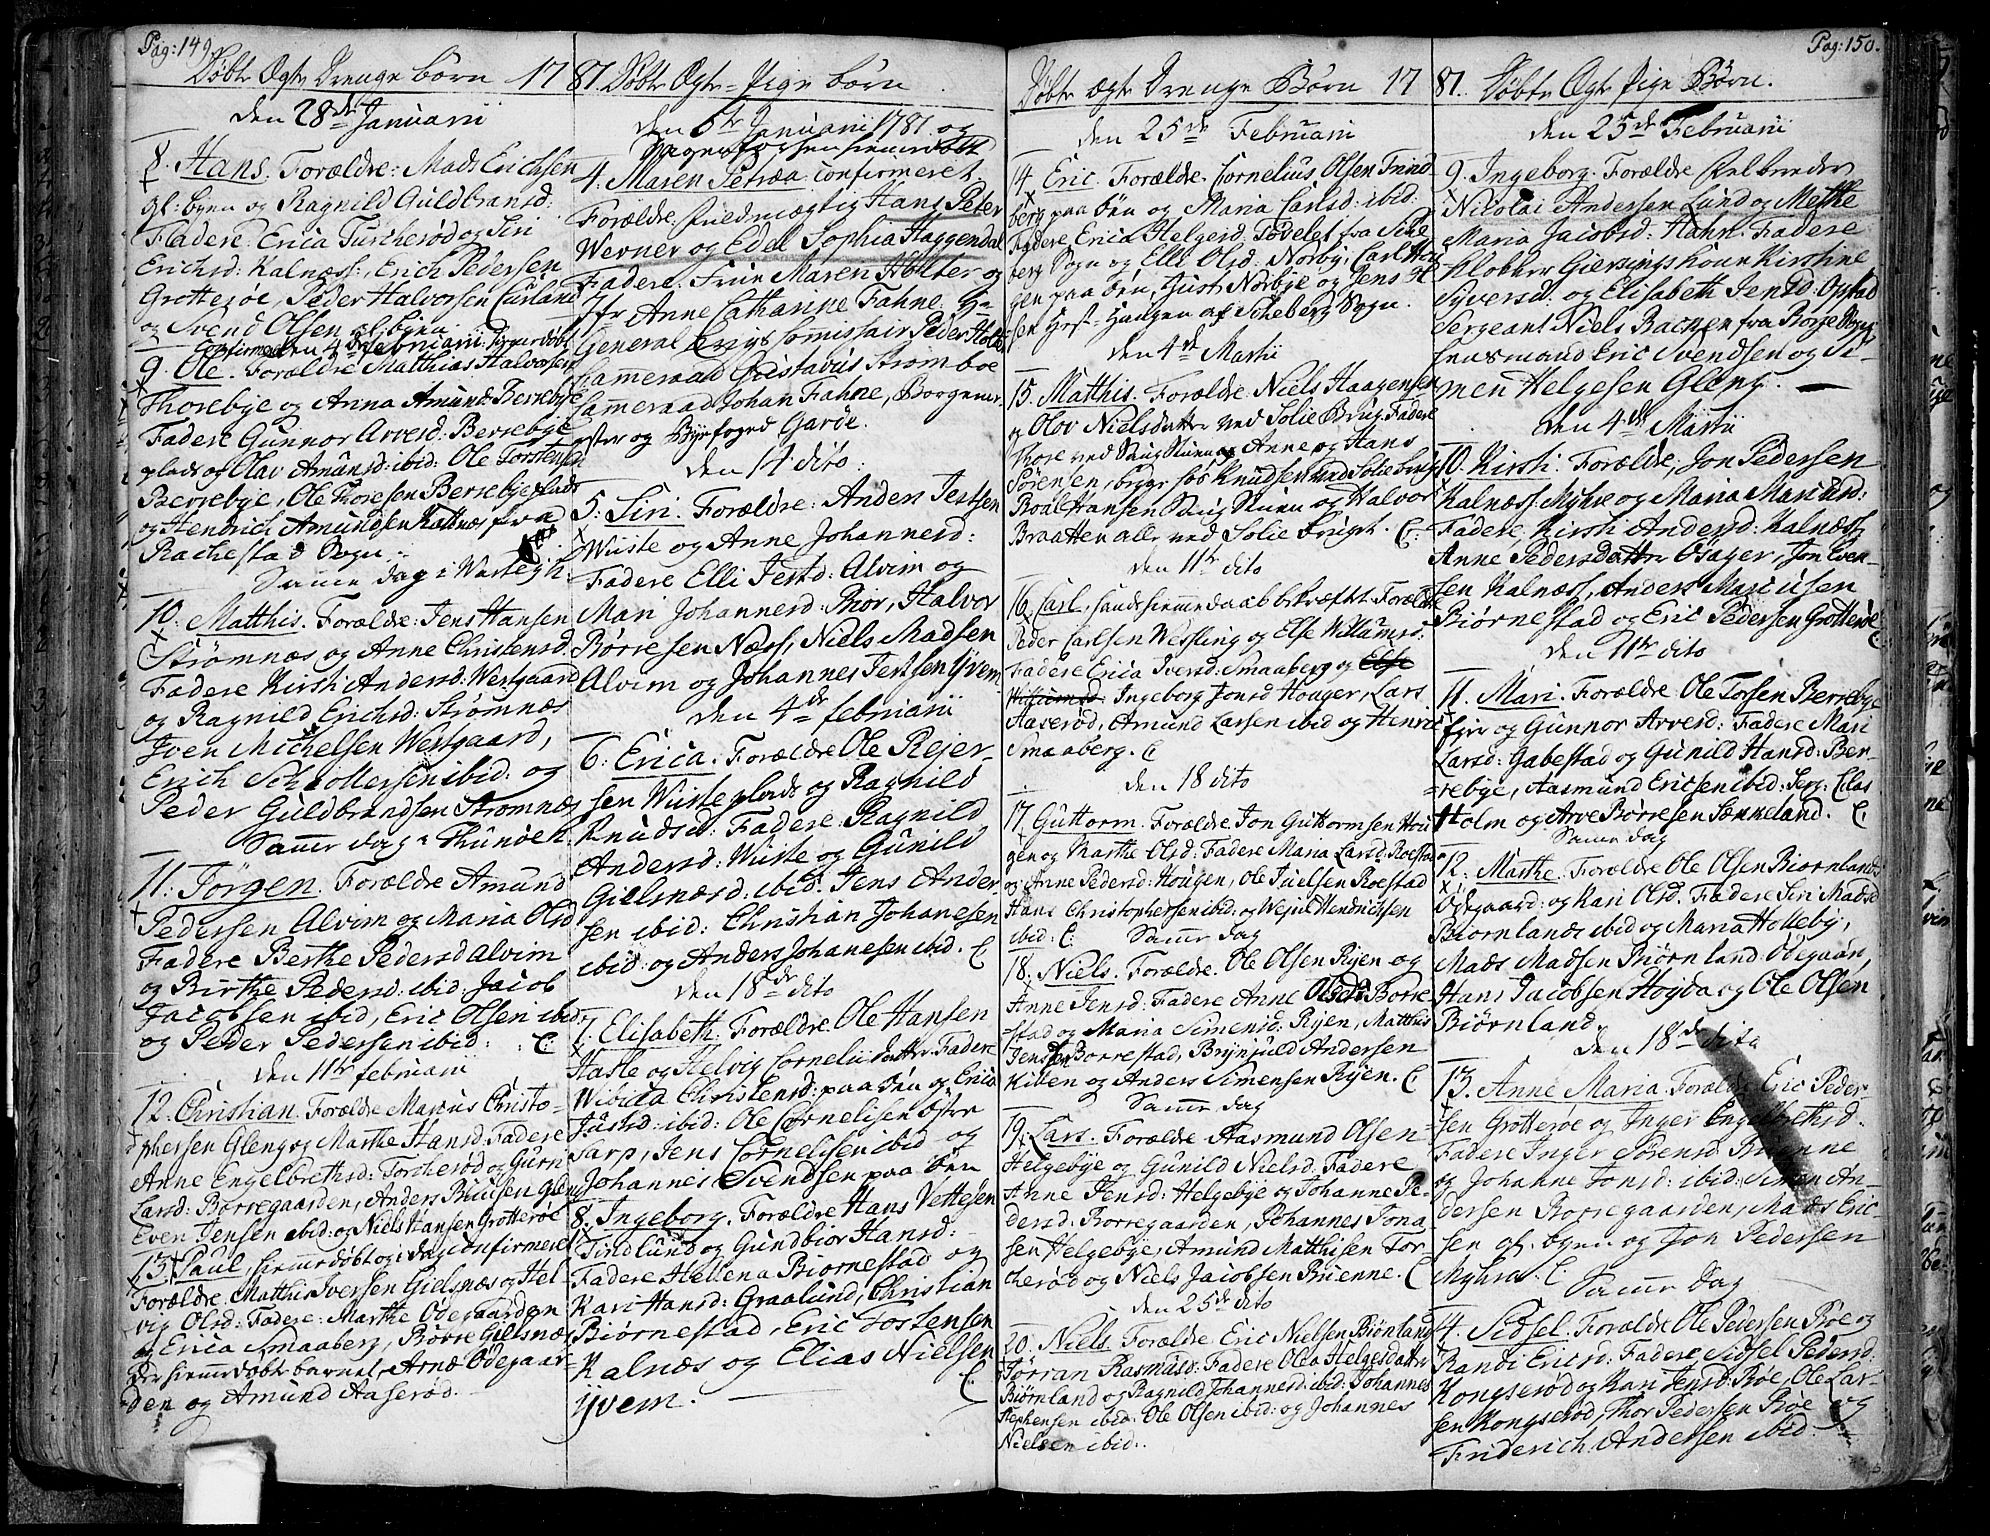 Pag: 149
Døbte Ægte Drenge børn 17
den 28de Januarii
8. Hans. Forældre: Mads Erichsen
gl: byen og Ragnild Guldbransd:
Fadere. Erica Turcherød og Siri
Erichsd: Kalnæss:, Erich Pedersen
Grotterøe, Peder Halvorsen Curland
og Svend Olsen gl: byen.
Confirmed den 4de februarii hiemedøbt
9. Ole. Forældre Matthias Halvorsen
Thorebye og Anna Amunds Berrebye
Fadere Gunnor Arvesd: Berrebye
plads og Olav Amunsd: ibid: Ole Torstensen
Berrebye, Ole Thoresen Berrebyeplads
og Hendrich Amundsen Kattnæs fra
Rachestad Sogn.
Same dag i Warteigh
10. Matthis. Forældre: Jens Hansen
Strømnæs og Anne Christensd
Fadere Kirsti Andersd: Westgaard
og Ragnild Erichsd: Strømnæs
Iven Michelsen Westgaard,
Erich ibid: og
Peder Guldbrandsen Strømnæs
Same dag i Thuneh.
11. Jørgen. Forældre Amund
Pedersen Alvim og Maria Olsd
Fadere Berthe Pedersd Alvim
og Birthe Pedersd: ibid: Jacob
Jacobsen ibid, Eric Olsen ibid:
og Peder Pedersen ibid: C:
den 11te februarii
12. Christian. Forældre Marcus Christo-
phersen Gleng og Marthe Hansd Fadere
Anne Engelbrethsd: Torcherød og Guri
Larsd: Borregaarden, Anders Gleng
Even Jensen ibid: og Niels Hansen Grotterøe
13. Paul, hiemmedøbt og i dag confirmeret
Forældre, Matthis Iversen Gielsnæs og Hel-
vig Olsd: Fadere: Marthe Odegaarden
og Erica Smaaberg, Børre Gielsnæs
der hiemme døbte barnet, Arne Odegaar-
den og Amund Aaserød.

81. Døbte Ægte Pige børn
den 6te Januarii 1781. og
4. Maren Petræa confirmeret.
Forældre, Hans Peter
Werner og Edel Sophia Haggendal
Fadere: Frue Maren Holter og
Jfr Anne Cathanne Fahne.
General Krigs Comissair Peder Holte
Cammeraad Gustavus Stromboe
Cammeraad Johan Fahne, Borgeme-
ster og Byefoged Garøe.
den 14 dito:
5. Siri. Forældre: Anders Jestsen
Wiiste og Anne Johannesd:
Fadere Elli Jestsd: Alvim og
Mari Johannesd: Thor, Halvor
Børresen Næss, Niels Madsen
Alvim og Johannes Jestsen Yvem
den 4de februarii
6. Erica. Forældre Ole Rejer-
sen Wiiste plads og Ragnild
Knudsd: Fadere: Ragnild
Andersd: Wiiste og Gunild
Gielsnæsd: ibid: Jens Ander
sen ibid: Christian Johanesen
ibid: og Anders Johanesen ibid. C
den 18de dito
7. Elisabeth. Forældre. Ole Hansen
Hasle og Helvig Cornelii datter Fadere
Wibicha Christensd: paa Øen og Erica
Justsd: ibid: Ole Cornelisen øster
Sarp, Jens Cornelisen ibid og
Johannes Svendsen paa Øen
8. Ingeborg. Forældre Hans Vettesen
Tindlund og Gundbior Hansd:
Fadere Hellena Biørnestad og
Kari Hansd: Graalund, Christian
Biørnestad, Eric Tostensen
Kalnæs og Elias Nielsen
Yvem. C:

Døbte Ægte Drenge Børn 17
den 25de Februarii
14. Eric. Forældre. Cornelius Olsen Trind-
berg paa Øen og Maria Carlsd: ibid:
Fadere, Erica Helgesd: Tovelet fra Sche
berg Sogn og Elli Olsd: Norby, Carl Hou
gen paa Øen, Just Norbye og Jens H
sen Høst-Haugen af Scheberg Sogn.
den 4de Martii
15. Matthis. Forældre. Niels Haagensen
og Olov Nielsdatter ved Solie Brug. Fadere
Thore ved og Anne og Hans
Sørensen, Knudsen ved Solie brug
Boal Hansen og Halvor
Braatten alle ved Solie Bruget. C:
den 11te dito
16. Carl. Forældre
Peder Carlsen Wessling og Else Willumsd:
Fadere Erica Iversd: Smaaberg og Else
Ingeborg Jonsd Houger, Lars
Aaserød, Amund Larsen ibid og Henric
Smaaberg. C
den 18 dito
17. Guttorm. Forældre Jon Guttormsen Hou
gen og Marthe Olsd: Fadere Maria Larsd: Roestad
og Anne Pedersd: Hougen, Ole Juelsen Roestad
Hans Christophersen ibid: og Wejul Hendrichsen
ibid: C: Same dag
18. Niels. Forældre. Ole Olsen Ryen og
Anne Jensd: Fadere Anne Olsd: Borre
stad og Maria Simensd: Ryen, Matthis
Jensen Borrestad, Brynjuld Andersen
Kilsen og Anders Simensen Ryen. C
Same dag
19. Lars. Forældre Aasmund Olsen
Helgebye og Gunild Nielsd: Fadere
Anne Jensd: Helgebye og Johanne Pe-
dersd: Borregaarden, Johannes Jona
sen Helgebye, Amund Matthisen Tor-
cherød og Niels Jacobsen Bruenne. C
den 25de dito
20. Niels. Forældre. Eric Nielsen Biørnland
Jørran Rasmusd: Fadere Olea Helgesdatter
Biørnland og Ragnild Johannesd: ibid: Johannes
Stephensen ibid: Ole Olsen ibid: og Johannes
Nielsen ibid:

Pag: 150.
81. Døbte Ægte Pige Børn.
den 25de Februarii
9. Ingeborg. Forældre
Nicolai Andersen Lund og Methe
Maria Jacobsd: Hahn. Fadere
Klokker Giersings Kone Kirstine
Syversd: og Elisabeth Jensd: Opstad
Sergeant Niels Bachen fra Borge Sogn
Lensmand Eric Svendsen og Si-
men Helgesen Gleng.
den 4de Martii
10. Kirsti. Forældre, Jon Pedersen
Kalnæss Myhre og Maria Mariusd:
Fadere, Kirsti Andersd: Kalnæss,
Anne Pedersdatter Opager, Jon Even-
sen Kalnæss, Anders Mariusen
Biørnestad og Eric Pedersen Grotterøe
C:
den 11te dito
11. Mari. Forældre Ole Torsen Berrebye
og Gunnor Arvesd: Fadere Mari
Larsd: Gabestad og Gunild Hansd: Ber-
rebye, Aasmund Ericsen ibid: Serg: Elias
Holm og Arve Børresen Sænneland. C:
Same dag
12. Marthe. Forældre Ole Olsen Biørnland
Odegaard: og Kari Olsd: Fadere Siri Madsd
Biørnlands ibid og Maria Holleby,
Mads Madsen Biørnland: Odegaan,
Hans Jacobsen Høyda og Ole Olsen
Biørnland.
den 18de dito
13. Anne Maria. Forældre Eric Peder-
sen Grotterøe og Inger Engelbrethsd.
Fadere Inger Sørensd: Bruenne
og Johanne Jonsd: ibid: Simen An-
dersen Borregaarden, Mads Eric-
sen gl. byen og Jon Pedersen
Myhre. C:
Same dag
14. Sidsel. Forældre Ole Pedersen Røe og
Randi Ericsd: Fadere, Sidsel Pedersd:
Kongserød og Kari Jensd: Røe, Ole Lar-
sen Kongserød, Thor Pedersen Røe og
Friderich Andersen ibid.